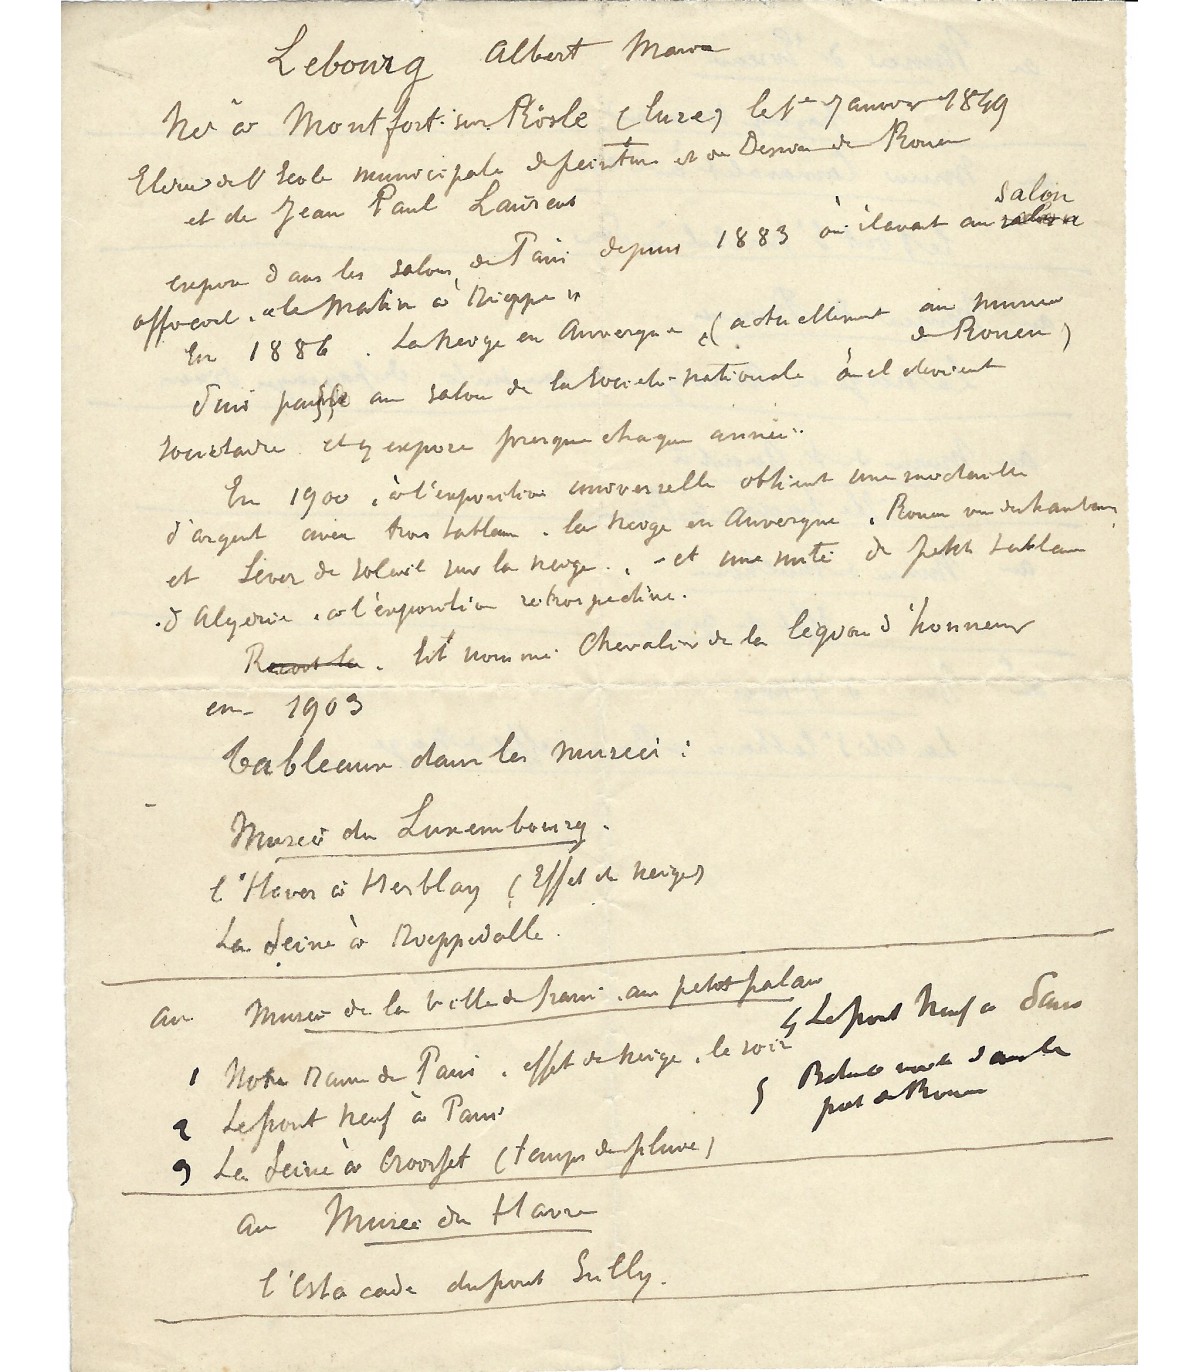 Lebourg Albert Marie
Né à Montfort-sur-Risle (Eure) le 1er Janvier 1849
Elève de l'Ecole municipale de peinture et de Dessin de Rouen
et de Jean Paul Laurens
salon
expose dans les salons de Paris depuis 1883 où il avait au
"le Matin à Dieppe"
En 1886. La neige en Auvergne, (actuellement au musée
de Rouen)
puis passe au salon de la société nationale où il devient
sociétaire et y expose presque chaque année.
En 1900, à l'exposition universelle obtient une médaille
d'argent avec trois tableaux. La neige en Auvergne, Rouen vu des hauteurs
et Lever de soleil sur la neige., - et une suite de petits tableaux
d'Algérie, à l'exposition rétrospective.
Reçoit la. Est nommé Chevalier de la légion d'honneur
en 1903
Tableaux dans les musées :
Musée du Luxembourg.
l'Hiver à Herblay (Effet de neige)
La Seine à Dieppedalle.
au Musée de la Ville de Paris, au petit palais
1 Notre Dame de Paris, effet de neige, le soir
2 Le pont neuf à Paris
3 La Seine à Croisset (temps de pluie)
4 Le pont Neuf à Paris
5 dans le
port de Rouen
au Musée du Havre
l'Estacade du pont Sully.